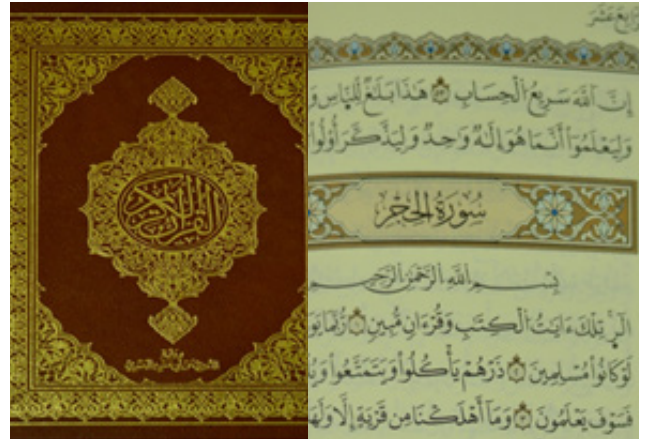 القرآن الكريم
رابع عشر
إِنَّ ٱللَّهَ سَرِيعُ ٱلْحِسَابِ ۝ هَٰذَا بَلَٰغٌ لِّلنَّاسِ وَ
وَلِيَعْلَمُوٓا۟ أَنَّمَا هُوَ إِلَٰهٌ وَٰحِدٌ وَلِيَذَّكَّرَ أُو۟لُوا۟
سُورَةُ الْحِجْرِ
بِسْمِ ٱللَّهِ ٱلرَّحْمَٰنِ ٱلرَّحِيمِ
الٓر ۚ تِلْكَ ءَايَٰتُ ٱلْكِتَٰبِ وَقُرْءَانٍ مُّبِينٍ ۝ رُّبَمَا يَوَ
لَوْ كَانُوا۟ مُسْلِمِينَ ۝ ذَرْهُمْ يَأْكُلُوا۟ وَيَتَمَتَّعُوا۟ وَيُ
فَسَوْفَ يَعْلَمُونَ ۝ وَمَآ أَهْلَكْنَا مِن قَرْيَةٍ إِلَّا وَلَهَا